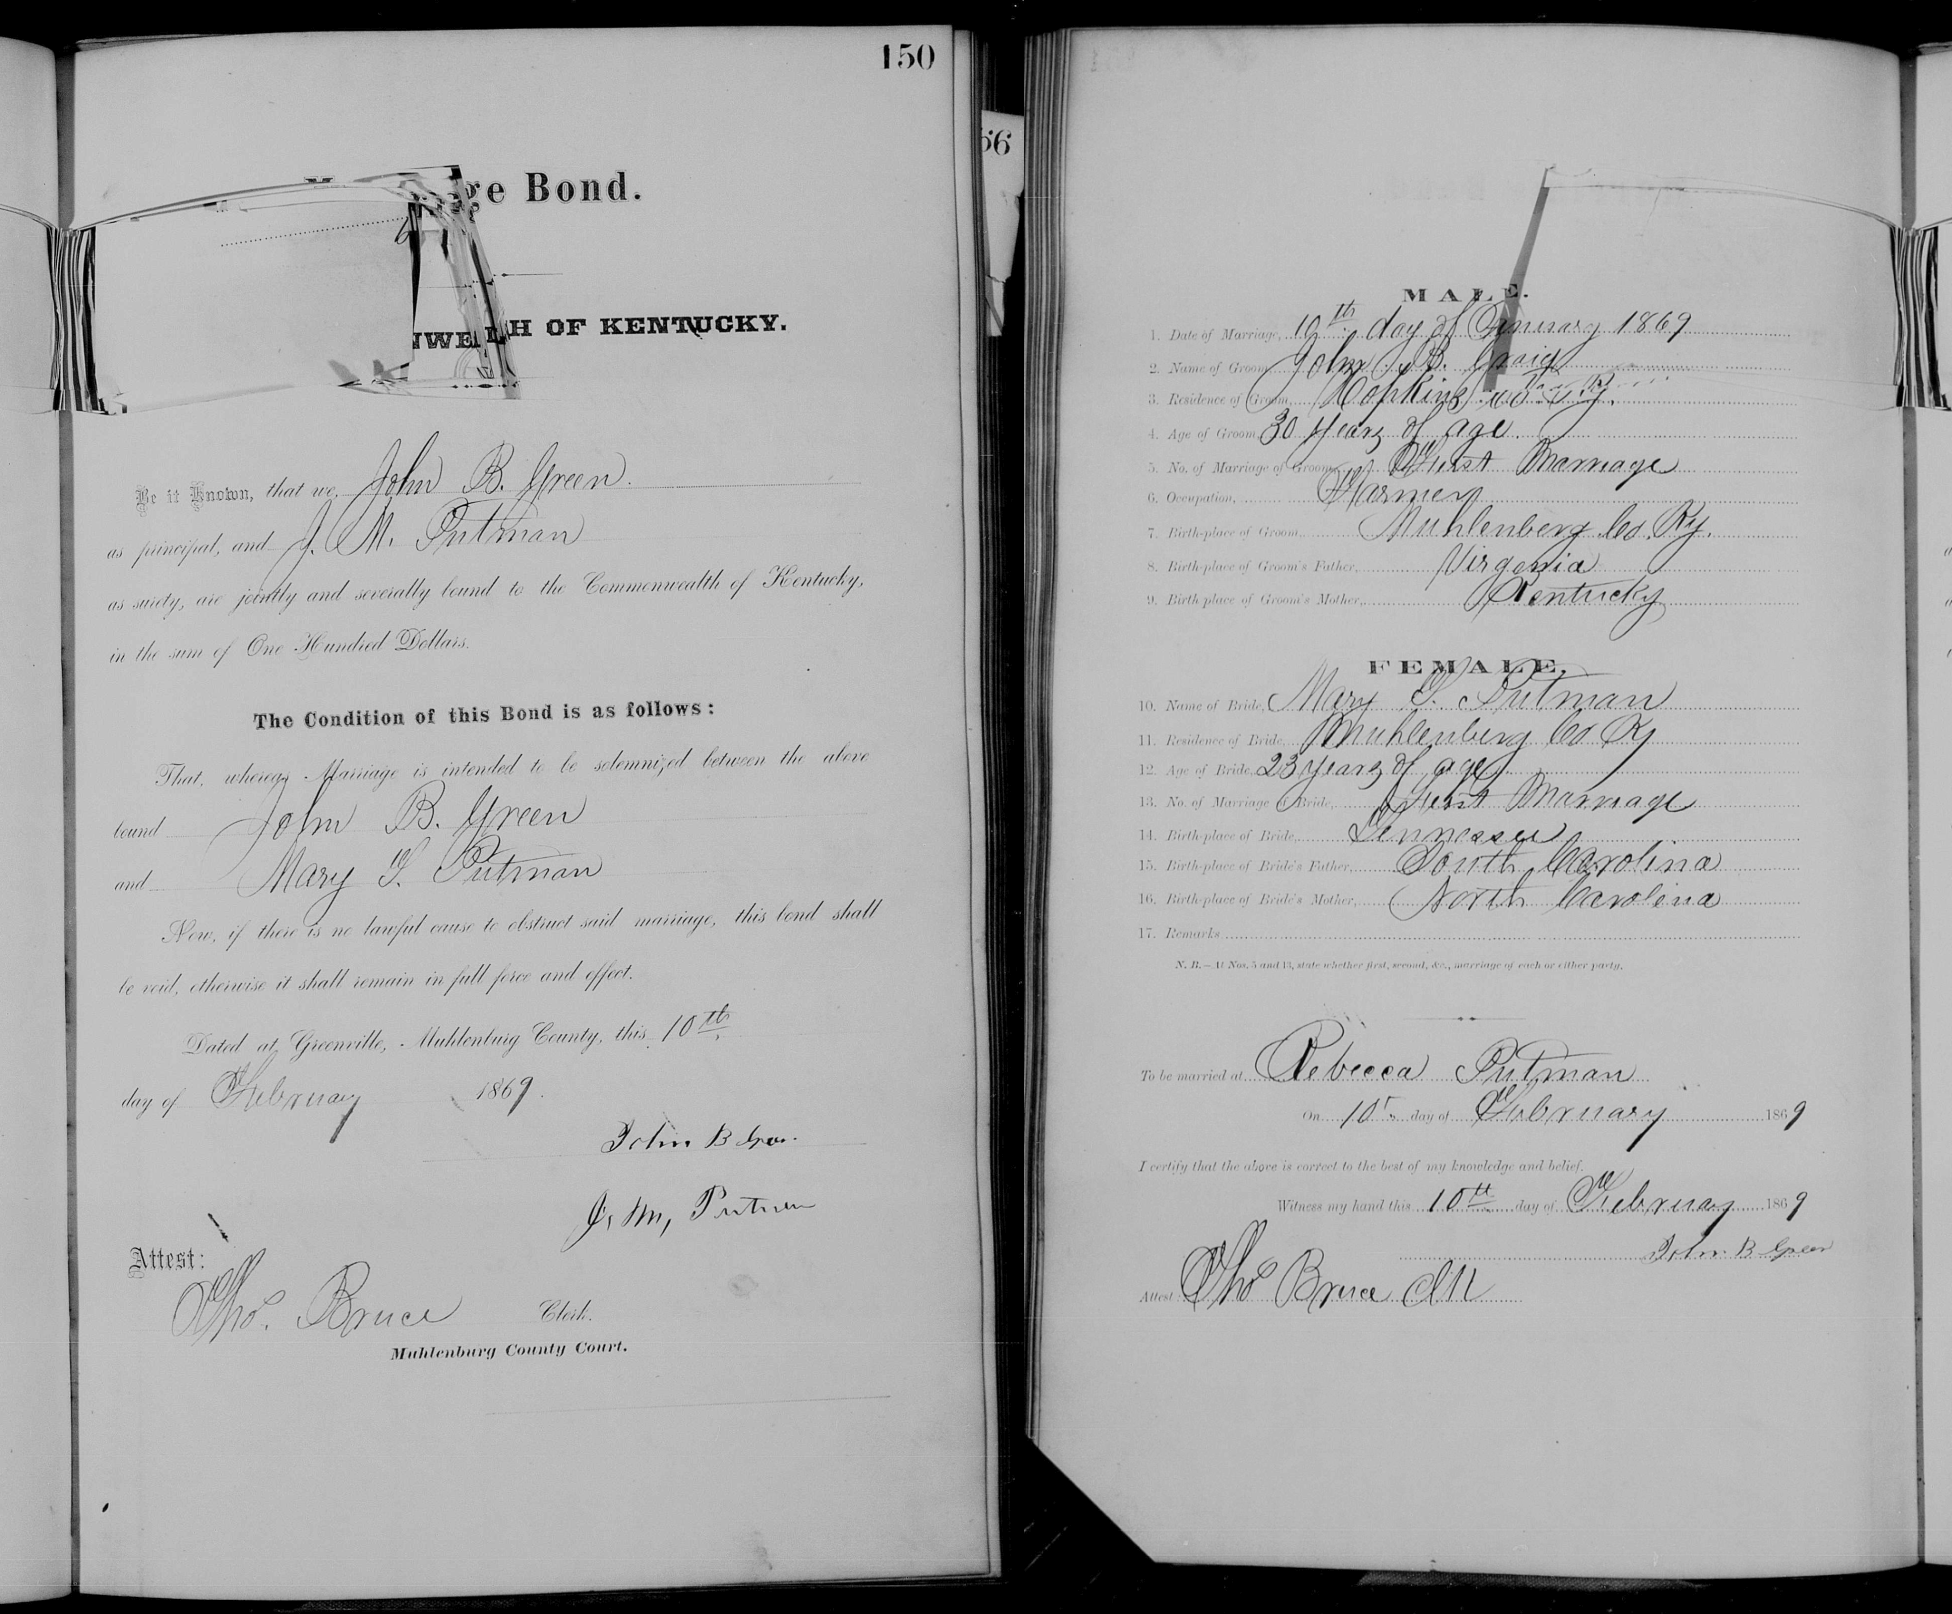 150
ge Bond.
66
H OF KENTUCKY.
Be it Known, that we, John B. Green.
as principal, and J. M. Putman
as surety, are jointly and severally bound to the Commonwealth of Kentucky,
in the sum of One Hundred Dollars.
The Condition of this Bond is as follows:
That, whereas Marriage is intended to be solemnized between the above
bound John B. Green
and Mary S. Putman
Now, if there is no lawful cause to obstruct said marriage, this bond shall
be void, otherwise it shall remain in full force and effect.
Dated at Greenville, Muhlenburg County, this 10th
day of February 1869.
John B Green
J. M, Putman
Attest:
Thos. Bruce Clerk.
Muhlenburg County Court.
MALE.
1. Date of Marriage, 10th day of 1869
2. Name of Groom John B. Craig
3. Residence of Groom, Hopkins Co Ky.
4. Age of Groom, 30 years of age.
5. No. of Marriage of Groom, First Marriage
6. Occupation, Farmer
7. Birth-place of Groom, Muhlenberg Co. Ky.
8. Birth-place of Groom's Father, Virginia
9. Birth-place of Groom's Mother, Kentucky
FEMALE.
10. Name of Bride, Mary S. Putman
11. Residence of Bride, Muhlenberg Co Ky
12. Age of Bride, 23 years of age
13. No. of Marriage of Bride, First Marriage
14. Birth-place of Bride, Tennessee
15. Birth-place of Bride's Father, South Carolina
16. Birth-place of Bride's Mother, North Carolina
17. Remarks
N. B.—At Nos. 5 and 13, state whether first, second, &c., marriage of each or either party.
To be married at Rebecca Putman
On 10th day of February 1869
I certify that the above is correct to the best of my knowledge and belief.
Witness my hand this 10th day of February 1869
John B Green
Attest: Thos Bruce Clk